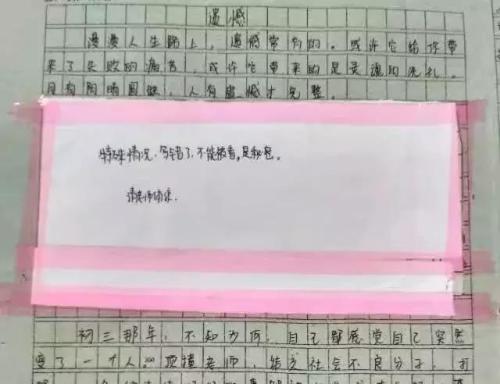 遗憾
漫漫人生路上，遗憾常有的。或许它给你带
来了失败的痛苦，或许它带来的是灵魂的洗礼。
月有阴晴圆缺，人有遗憾才完整。
特殊情况，写错了，不能被看，是秘密。
请老师谅解。
初三那年，不知为何，自己疑感觉自己突然
变了一个人。顶撞老师，结交社会不良分子，打